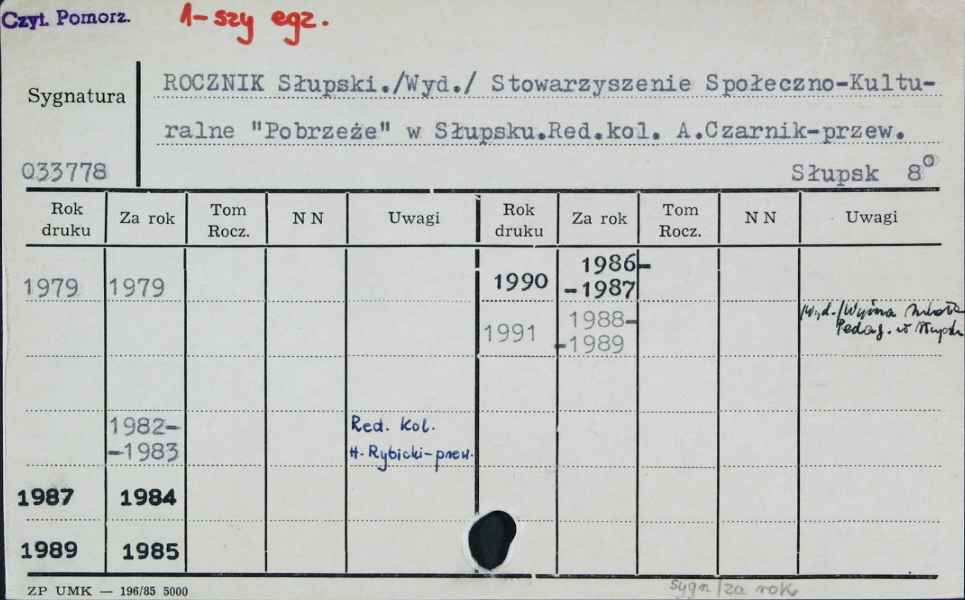 Czyt. Pomorz.
1-szy egz.
Sygnatura
ROCZNIK Słupski./Wyd./ Stowarzyszenie Społeczno-Kultu-
ralne "Pobrzeże" w Słupsku.Red.kol. A.Czarnik-przew.
033778
Słupsk 8°
Rok druku Za rok Tom Rocz. NN Uwagi Rok druku Za rok Tom Rocz. NN Uwagi
1979 1979 1990 1986-
-1987
1991 1988-
-1989
/Wyd./Wyższa Szkoła
Pedag. w Słupsku
1982-
-1983
Red. kol.
H. Rybicki-przew.
1987 1984
1989 1985
ZP UMK — 196/85 5000
sygn/za rok